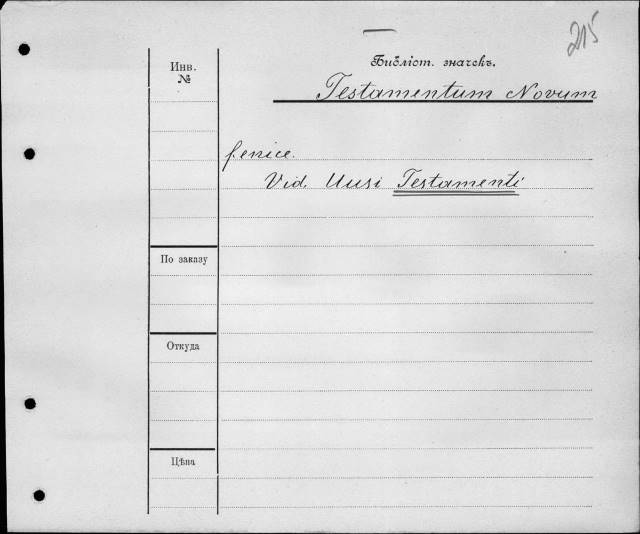 215
Библіот. значекъ.
Инв.
№
Testamentum Novum
fenice.
Vid. Uusi Testamenti
По заказу
Откуда
Цѣна